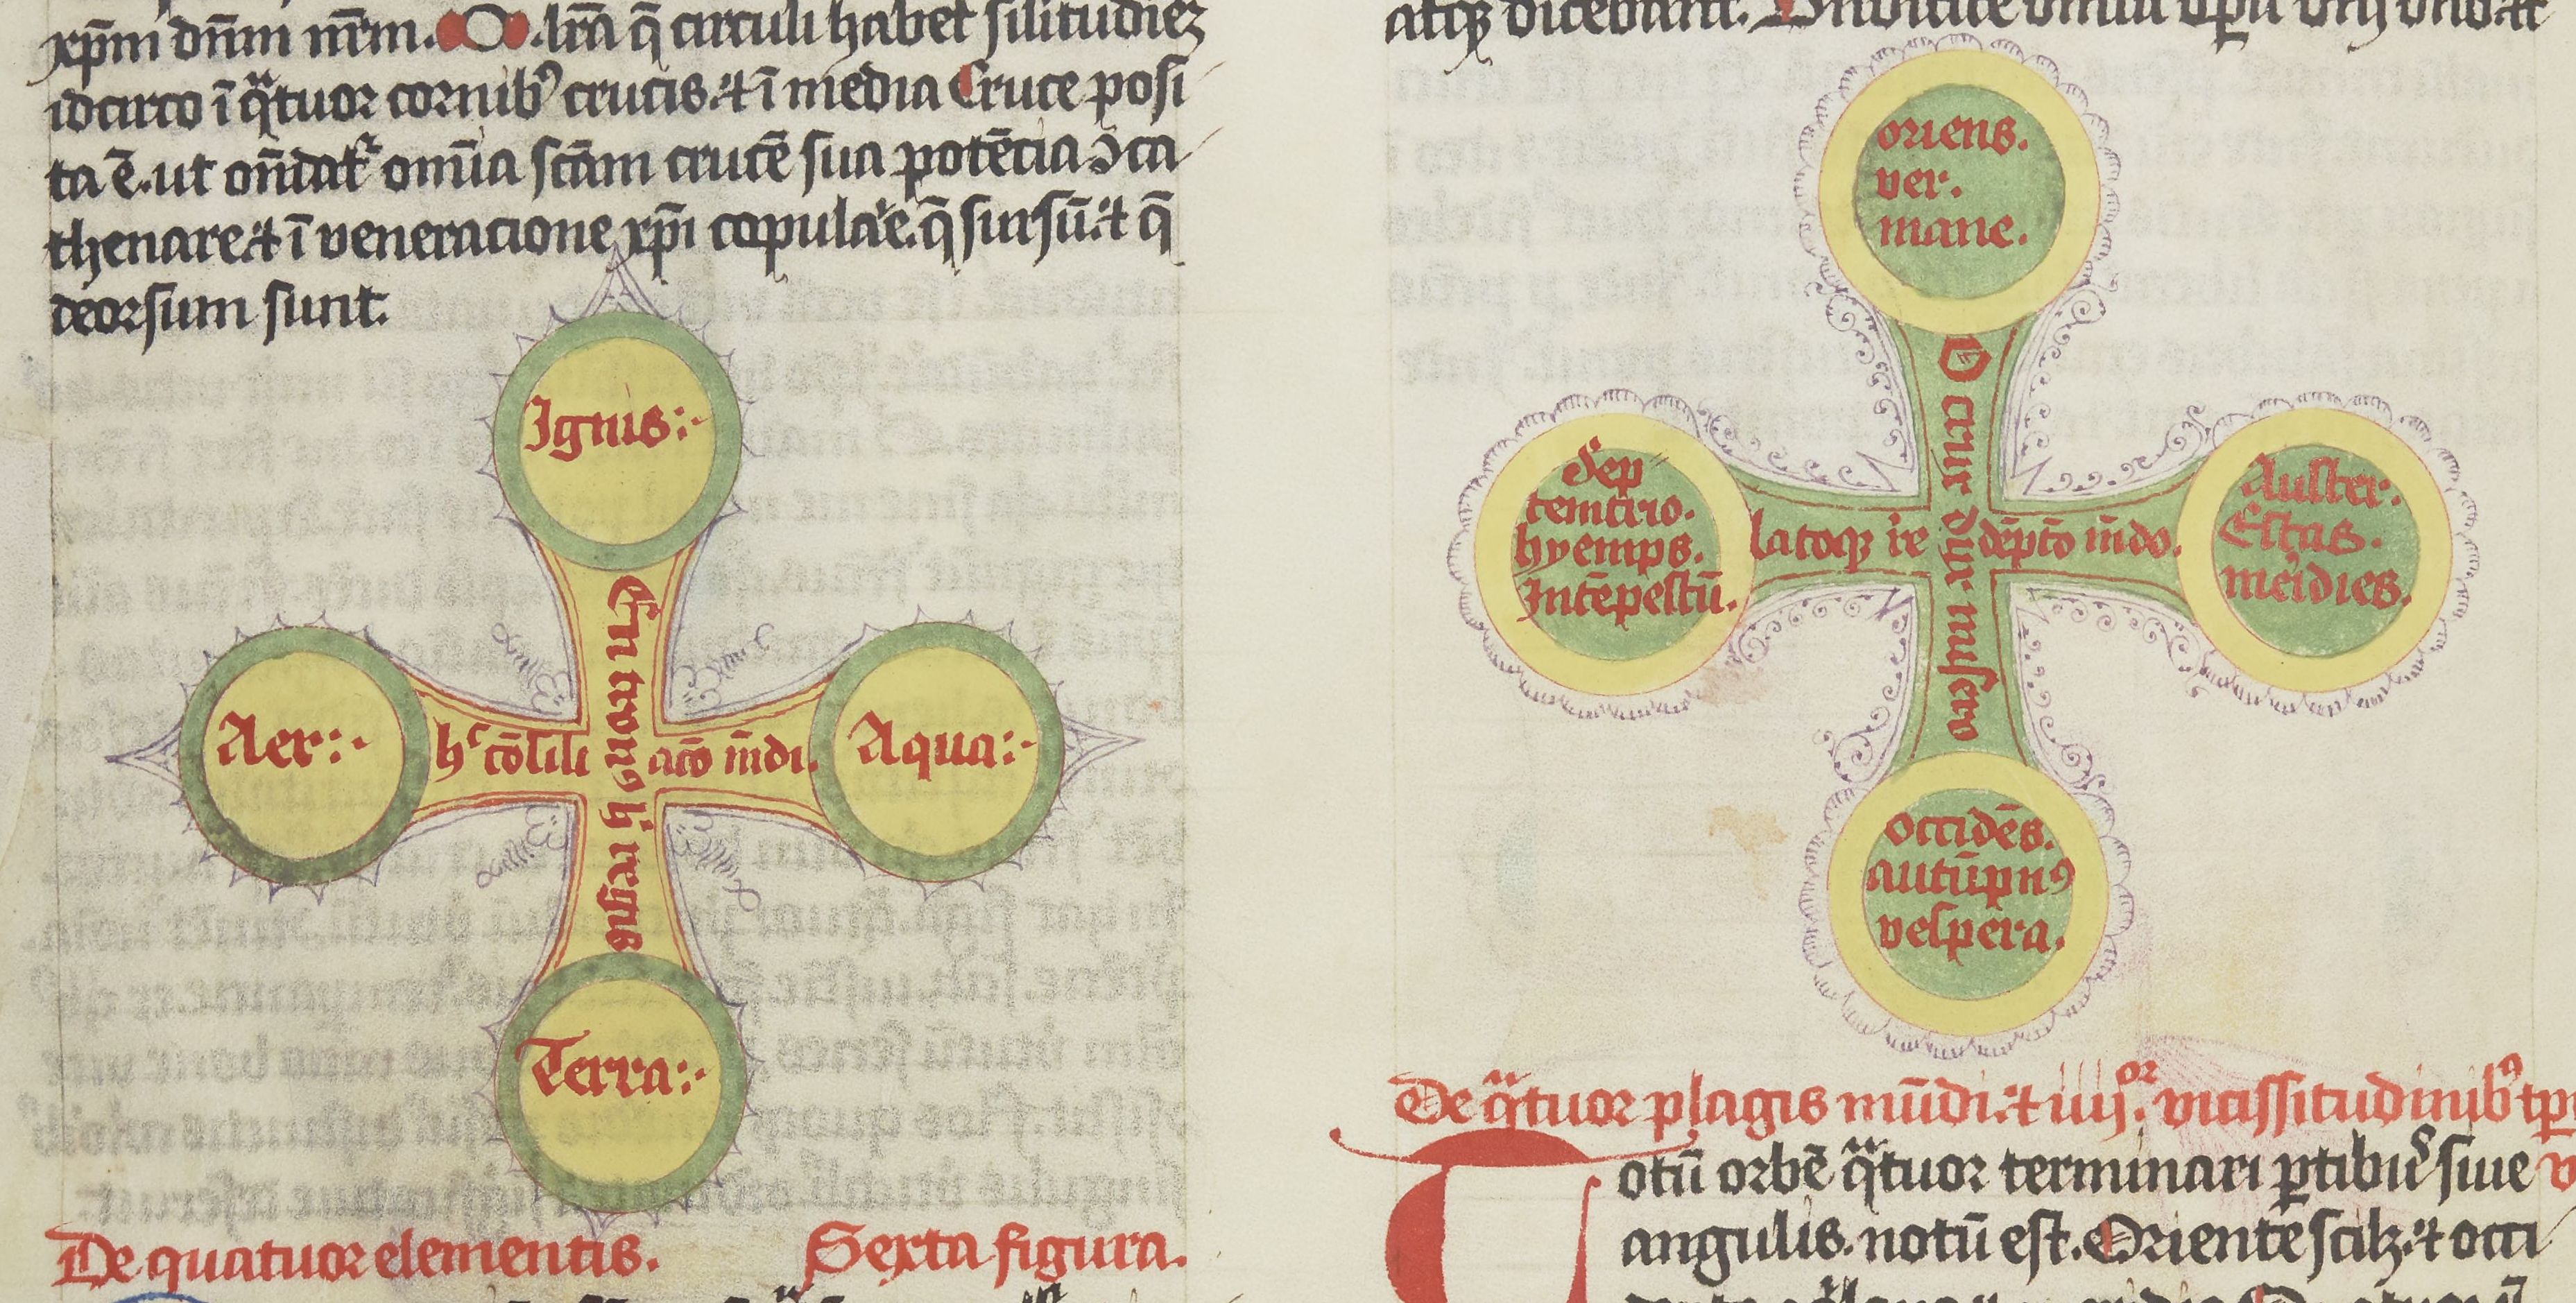 xp̄m dn̄m nr̄m. O. lrā q̄ circuli habet silitudiēꝫ
idcirco ī qͣtuor cornibꝰ crucis. ⁊ ī media Cruce posi
ta ē. ut on̄datʳ omīa scām crucē sua potēcia ↄca
thenare. ⁊ ī veneracione xpı̄ copulaˀe. q̄ sursū. ⁊ q̄
deorsum sunt.
Ignis:·
Aer:·
hͨ cōsili acō m̄di.
Aqua:·
En tronꝰ hͥ regis
Terra:·
De quatuor elementis. Sexta figura.
atqꝫ dicebant.
oriens.
ver.
mane.
Sep
temtrio.
hyemps.
Intēpestū.
latoqꝫ
dēpto m̄do.
Auster.
Estas.
meˀidies.
O crux misero
occidēs.
autūpnꝰ
vespera.
De qͣtuor plagis mūdi. ⁊ iiijᵒʳ. vicissitudinibꝰ tp̄
Totū orbē qͣtuor terminari ꝑtibus siue
angulis. notū est. Orientē scilꝫ. ⁊ occi